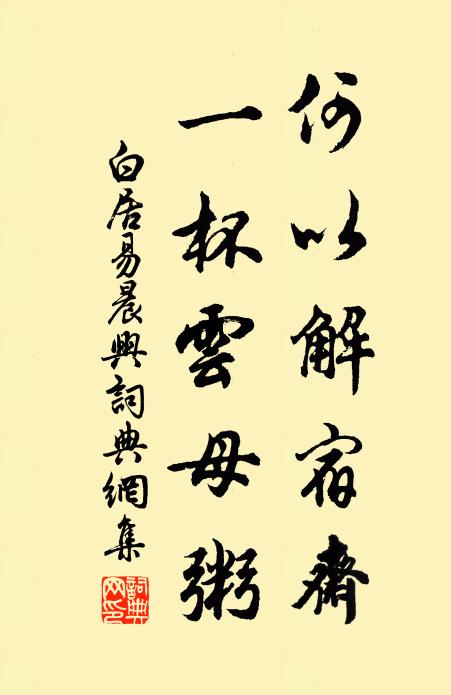 何以解宿齋
一杯雲母粥
白居易晨興詞典網集
詞典
网印